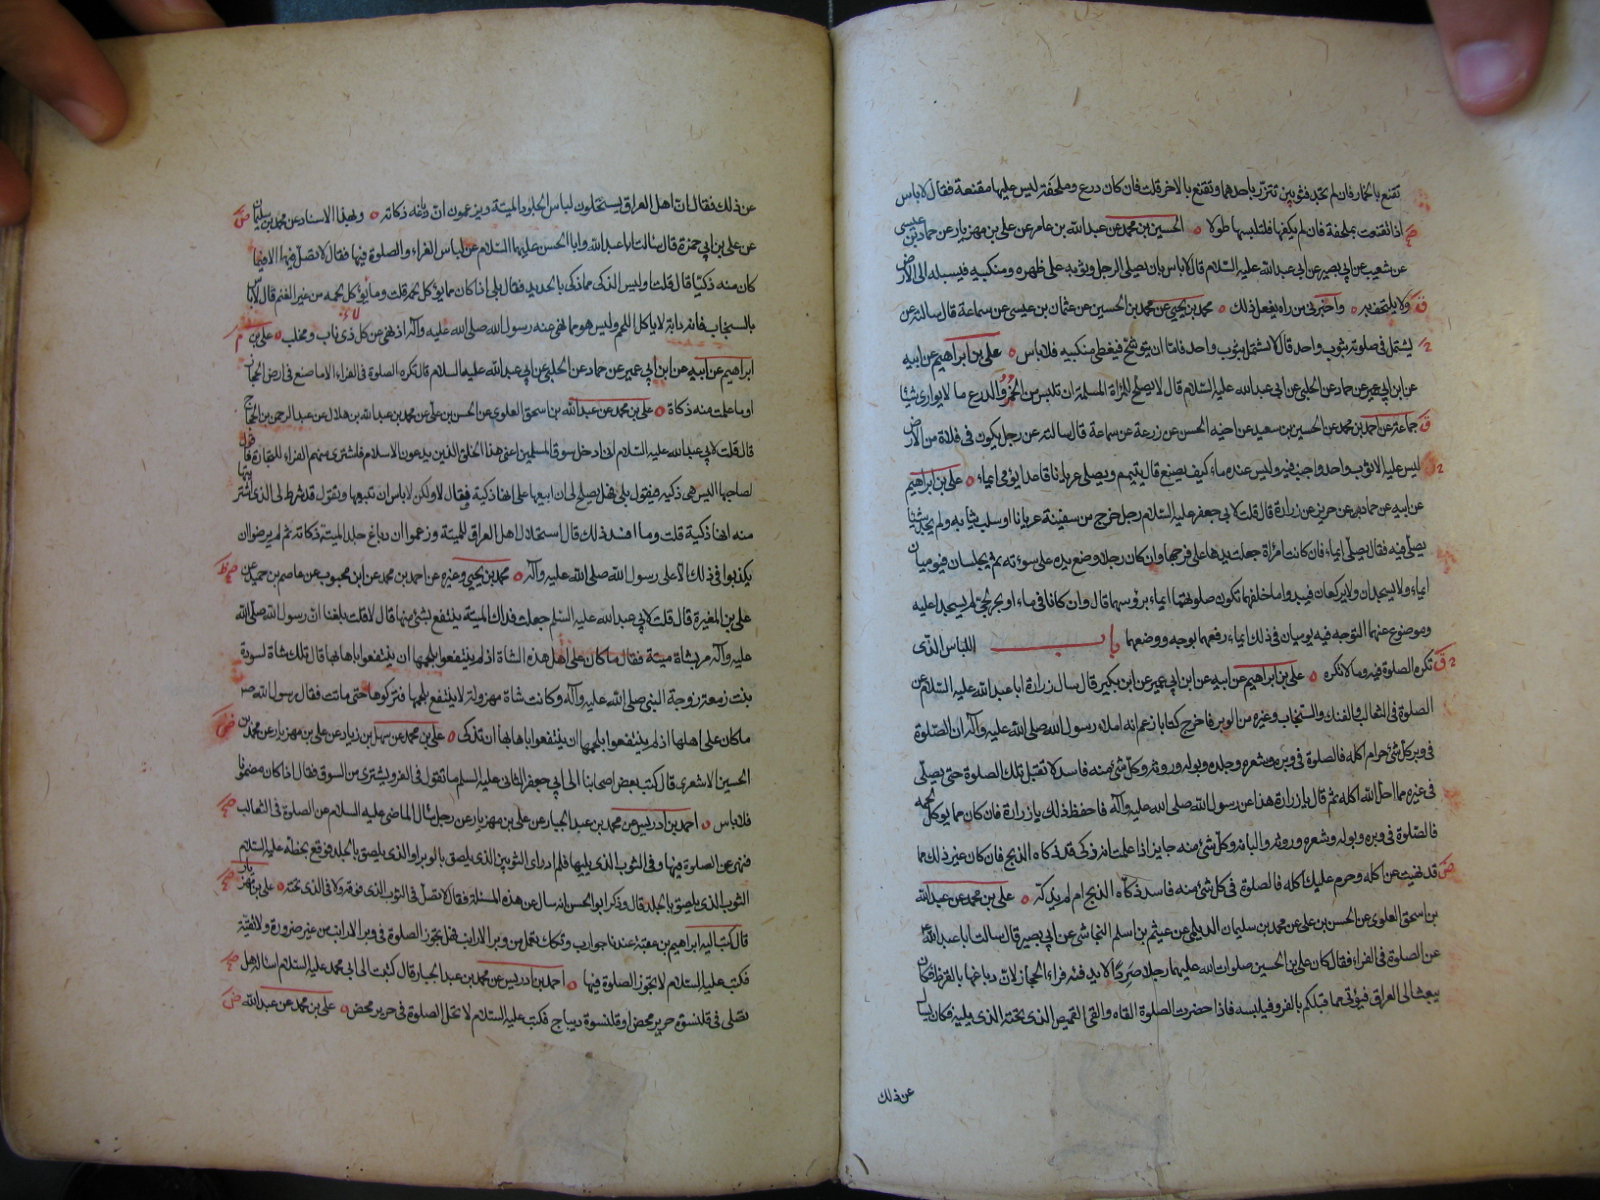 تقنع بالخمار فان لم تجد فثوبين تتزر باحدهما وتقنع بالاخر قلت فان كان درع وملحفة ليس عليها مقنعة فقال لا باس
اذا تقنعت بملحفة فان لم يكفها فلتلبسها طولا ه الحسين بن محمد عن عبدالله بن عامر عن علي بن مهزيار عن حماد بن عيسى
عن شعيب عن ابي بصير عن ابي عبدالله عليه السلام قال لا باس بان يصلي الرجل وثوبه على ظهره ومنكبيه فيسبله الى الارض
ولا يلتحف به ه واخبرني من راه يفعل ذلك ه محمد بن يحيى عن محمد بن الحسين عن عثمان بن عيسى عن سماعة قال سالته عن
يشتمل في صلوته بثوب واحد قال لا تشتمل بثوب واحد فاما ان يتوشح فيغطي منكبيه فلا باس ه علي بن ابراهيم عن ابيه
عن ابن ابي عمير عن حماد عن الحلبي عن ابي عبدالله عليه السلام قال لا يصلح للمراة المسلمة ان تلبس من الخمر والدرع ما لا يواري شيئا
جماعة عن احمد بن محمد عن الحسين بن سعيد عن اخيه الحسن عن زرعة عن سماعة قال سالته عن رجل يكون في فلاة من الارض
ليس عليه الا ثوب واحد واجنب فيه وليس عنده ماء كيف يصنع قال يتيمم ويصلي عريانا قاعدا يومي ايماء ه علي بن ابراهيم
عن ابيه عن حماد عن حريز عن زرارة قال قلت لابي جعفر عليه السلام رجل خرج من سفينة عريانا او سلب ثيابه ولم يجد شيئا
يصلي فيه فقال يصلي ايماء فان كانت امراة جعلت يدها على فرجها وان كان رجلا وضع يده على سوءته ثم يجلسان فيوميان
ايماء ولا يسجدان ولا يركعان فيبدو ما خلفهما تكون صلوتهما ايماء برؤسهما قال وان كانا في ماء او بحر لجي لم يسجدا عليه
وموضوع عنهما التوجه فيه يوميان في ذلك ايماء رفعهما توجه ووضعهما باب اللباس الذي
تكره الصلوة فيه وما لا تكره ه علي بن ابراهيم عن ابيه عن ابن ابي عمير عن ابن بكير قال سال زرارة ابا عبدالله عليه السلام عن
الصلوة في الثعالب والفنك والسنجاب وغيره من الوبر فاخرج كتابا زعم انه املاء رسول الله صلى الله عليه وآله ان الصلوة
في وبر كل شئ حرام اكله فالصلوة في وبره وشعره وجلده وبوله وروثه وكل شئ منه فاسد لا تقبل تلك الصلوة حتى يصلي
في غيره مما احل الله اكله ثم قال يا زرارة هذا عن رسول الله صلى الله عليه وآله فاحفظ ذلك يا زرارة فان كان مما يوكل لحمه
فالصلوة في وبره وبوله وشعره وروثه والبانه وكل شئ منه جايز اذا علمت انه ذكي قد ذكاه الذبح فان كان غير ذلك مما
قد نهيت عن اكله وحرم عليك اكله فالصلوة في كل شئ منه فاسد ذكاه الذبح ام لم يذكه ه علي بن محمد عن عبدالله
بن اسحق العلوي عن الحسن بن علي عن محمد بن سليمان الديلمي عن عيثم بن اسلم النجاشي عن ابي بصير قال سالت ابا عبدالله ع
عن الصلوة في الفراء فقال كان علي بن الحسين صلوات الله عليهما رجلا صردا لا يدفئه فراء الحجاز لان دباغها بالقرظ فكان
يبعث الى العراق فيؤتى مما قبلكم بالفرو فيلبسه فاذا حضرت الصلوة القاه والقى القميص الذي تحته الذي يليه فكان يسال
عن ذلك
عن ذلك فقال ان اهل العراق يستحلون لباس الجلود الميتة ويزعمون ان دباغه ذكاته ه وبهذا الاسناد عن محمد بن سليمان
عن علي بن ابي حمزة قال سالت ابا عبدالله وابا الحسن عليهما السلام عن لباس الفراء والصلوة فيها فقال لا تصل فيها الا فيما
كان منه ذكيا قال قلت اوليس الذكي مما ذكي بالحديد فقال بلى اذا كان مما يؤكل لحمه قلت وما يؤكل لحمه من غير الغنم قال لا باس
بالسنجاب فانه دابة لا ياكل اللحم وليس هو مما نهى عنه رسول الله صلى الله عليه وآله اذ نهى عن كل ذي ناب ومخلب ه علي بن
ابراهيم عن ابيه عن ابن ابي عمير عن حماد عن الحلبي عن ابي عبدالله عليه السلام قال تكره الصلوة في الفراء الا ما صنع في ارض الحجاز
او ما علمت منه ذكاة ه علي بن محمد عن عبدالله بن اسحق العلوي عن الحسن بن علي عن محمد بن عبدالله بن هلال عن عبدالرحمن بن الحجاج
قال قلت لابي عبدالله عليه السلام اني ادخل سوق المسلمين اعني هذا الخلق الذين يدعون الاسلام فاشتري منهم الفراء للتجارة فاقول
لصاحبها اليس هي ذكية فيقول بلى فهل يصلح لي ان ابيعها على انها ذكية فقال لا ولكن لا باس ان تبيعها وتقول قد شرط لي الذي اشتريتها
منه انها ذكية قلت وما افسد ذلك قال استحلال اهل العراق للميتة وزعموا ان دباغ جلد الميتة ذكاته ثم لم يرضوا ان
يكذبوا في ذلك الا على رسول الله صلى الله عليه وآله ه محمد بن يحيى وغيره عن احمد بن محمد عن ابن محبوب عن عاصم بن حميد عن
علي بن المغيرة قال قلت لابي عبدالله عليه السلم جعلت فداك الميتة ينتفع بشئ منها قال لا قلت بلغنا ان رسول الله صلى الله
عليه وآله مر بشاة ميتة فقال ما كان على اهل هذه الشاة اذ لم ينتفعوا بلحمها ان ينتفعوا باهابها قال تلك شاة لسودة
بنت زمعة زوجة النبي صلى الله عليه وآله وكانت شاة مهزولة لا ينتفع بلحمها فتركوها حتى ماتت فقال رسول الله ص
ما كان على اهلها اذ لم ينتفعوا بلحمها ان ينتفعوا باهابها ان تذكى ه علي بن محمد عن سهل بن زياد عن علي بن مهزيار عن محمد بن
الحسين الاشعري قال كتب بعض اصحابنا الى ابي جعفر الثاني عليه السلم ما تقول في الفرو يشترى من السوق فقال اذا كان مضمونا
فلا باس ه احمد بن ادريس عن محمد بن عبد الجبار عن علي بن مهزيار عن رجل سال الماضي عليه السلام عن الصلوة في الثعالب
فنهى عن الصلوة فيها وفي الثوب الذي يليها فلم ادر اي الثوبين الذي يلصق بالوبر او الذي يلصق بالجلد فوقع بخطه عليه السلام
الثوب الذي يلصق بالجلد قال وذكر ابو الحسن انه سال عن هذه المسئلة فقال لا تصل في الثوب الذي فوقه ولا في الذي تحته ه علي بن مهزيار
قال كتب اليه ابراهيم بن عقبة عندنا جوارب وتكك تعمل من وبر الارانب فهل تجوز الصلوة في وبر الارانب من غير ضرورة ولا تقية
فكتب عليه السلام لا تجوز الصلوة فيها ه احمد بن ادريس عن محمد بن عبد الجبار قال كتبت الى ابي محمد عليه السلام اساله هل
تصلى في قلنسوة حرير محض او قلنسوة ديباج فكتب عليه السلام لا تحل الصلوة في حرير محض ه علي بن محمد عن عبدالله